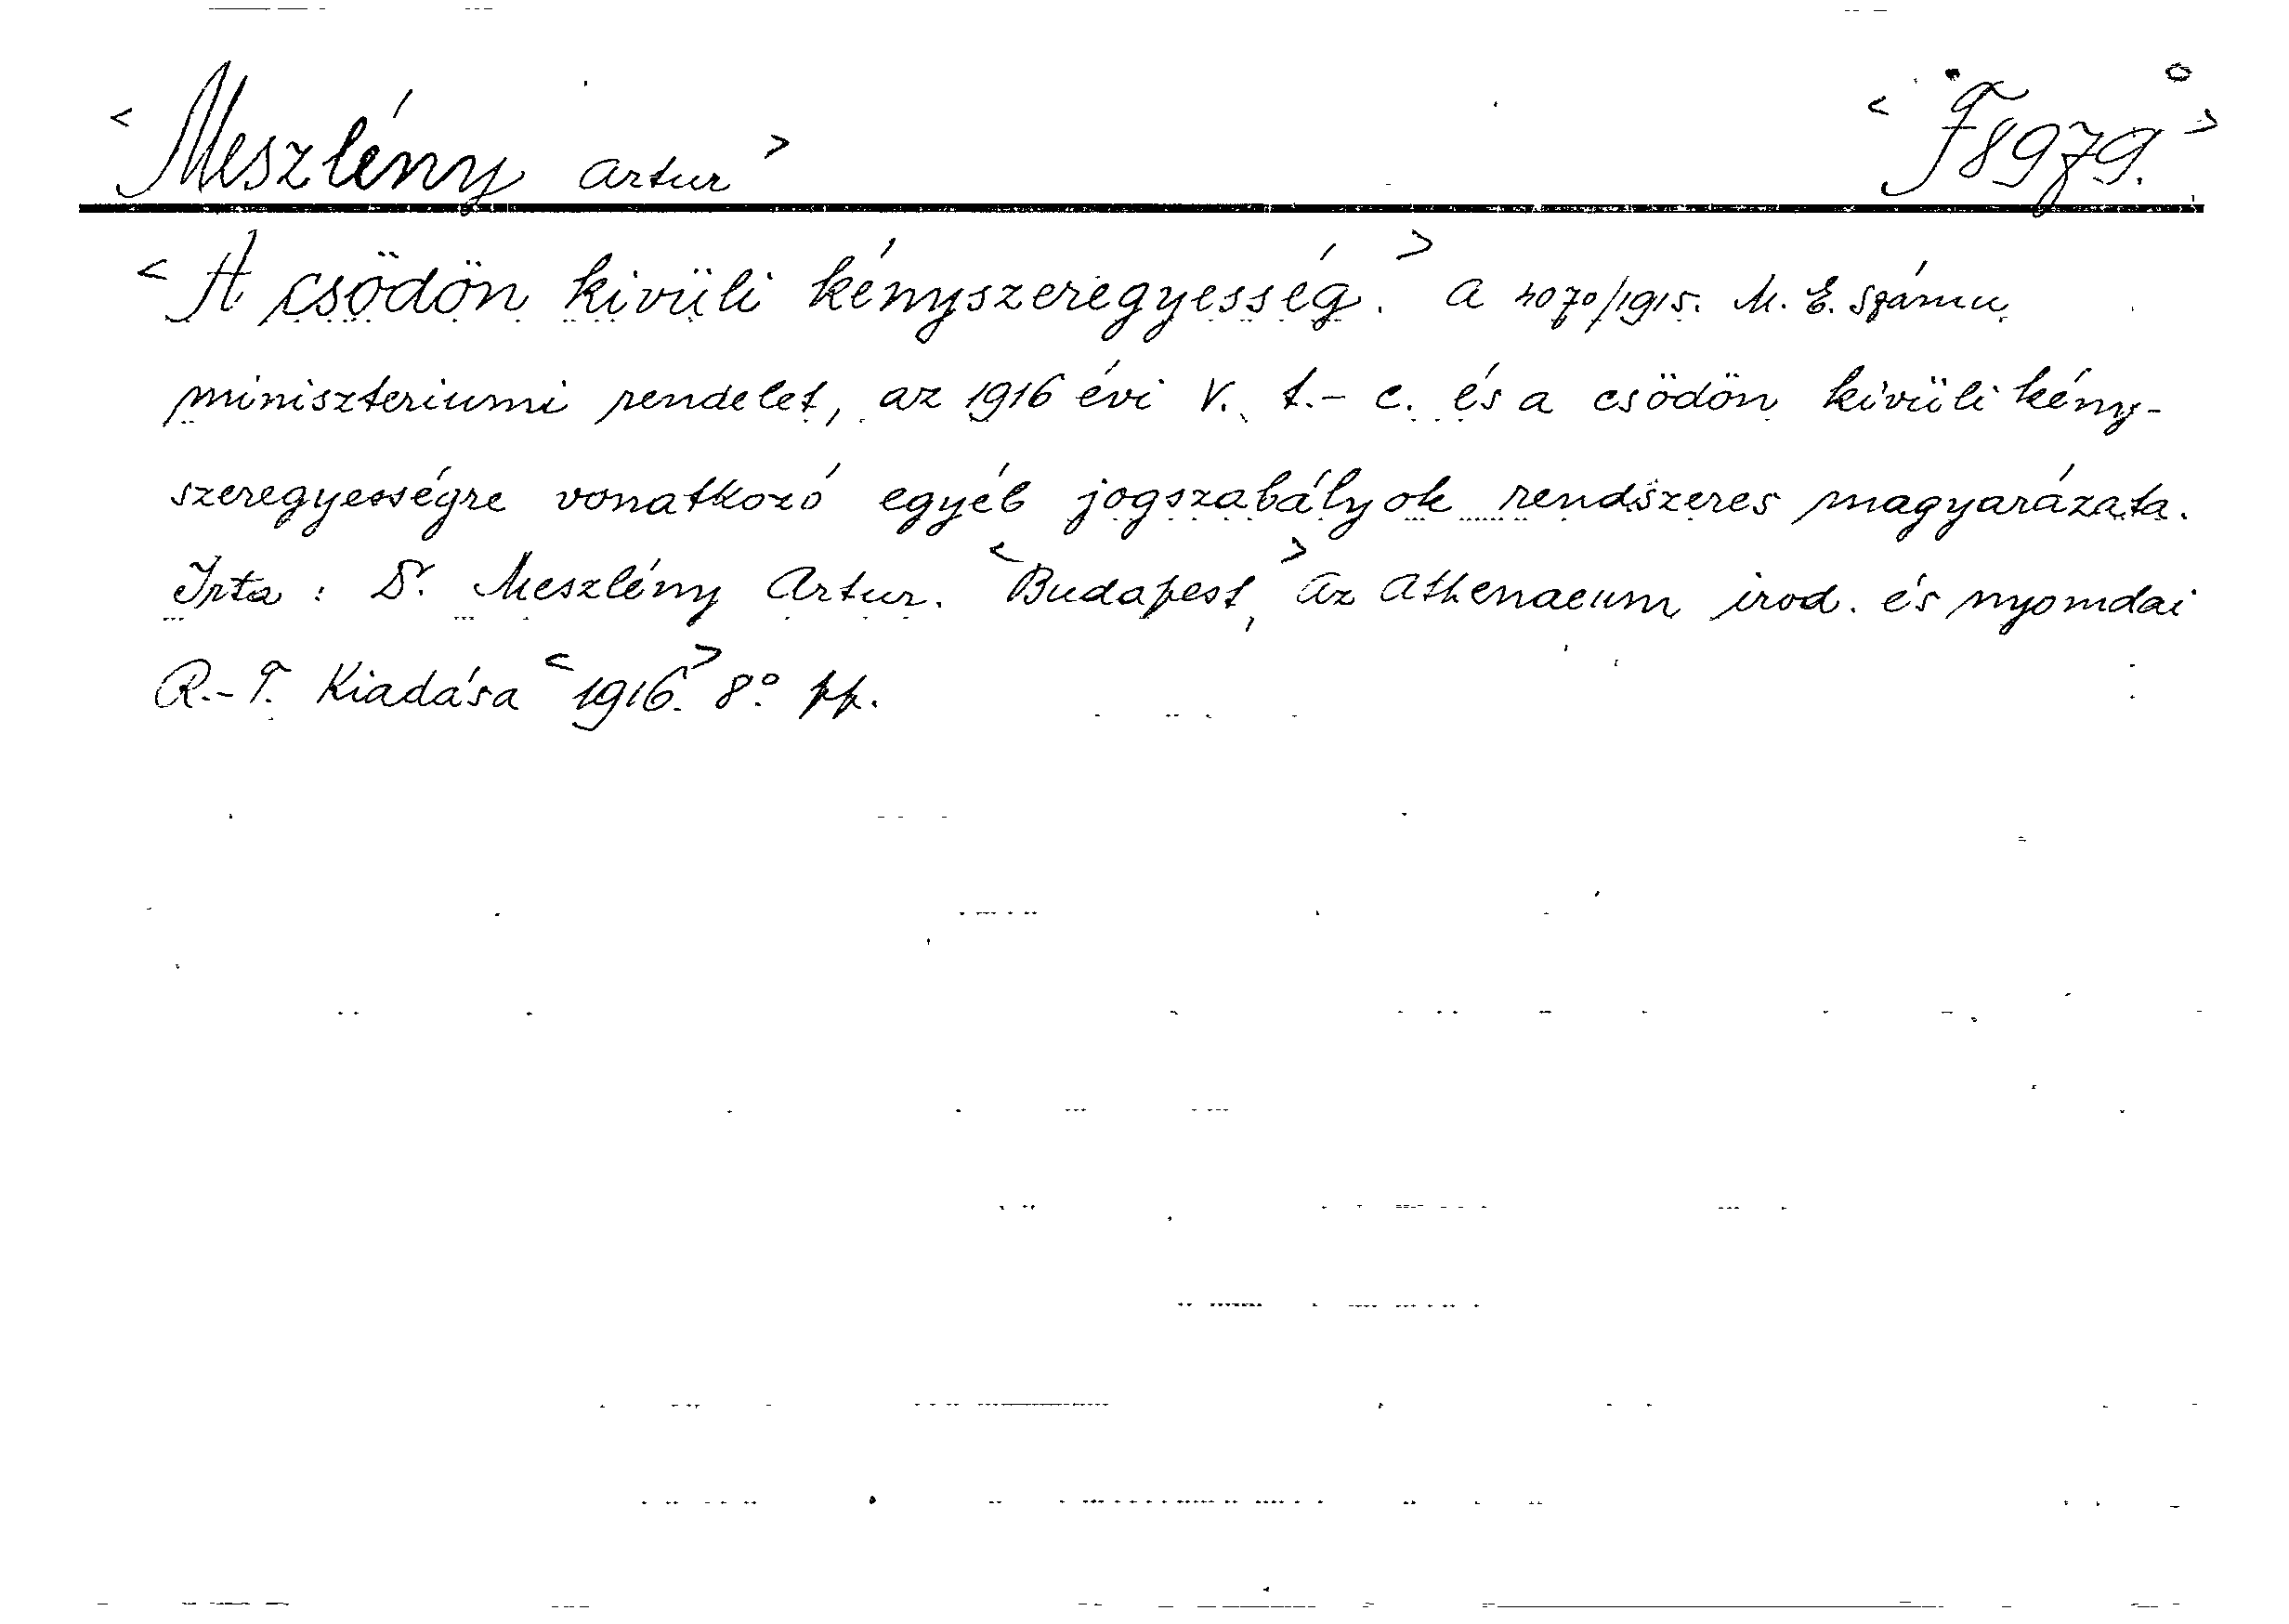 <Meszlény Artur> <F8979.>
<A csödön kivüli kényszeregyesség.> A 4070/1915. M. E. számu
miniszteriumi rendelet, az 1916 évi V. t.- c. és a csödön kivüli kény-
szeregyességre vonatkozó egyéb jogszabályok rendszeres magyarázata.
Irta : Dr. Meszlény Artur. <Budapest,> Az Athenaeum irod. és nyomdai
R.-T. Kiadása <1916.> 8° pp.